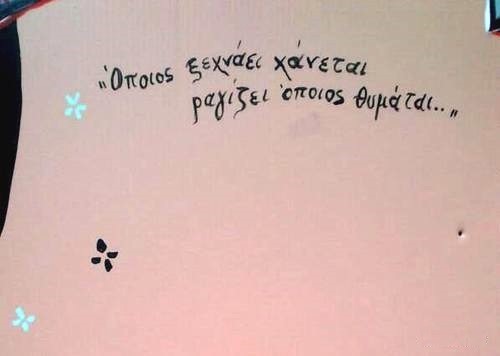 „Όποιος ξεχνάει χάνεται
ραγίζει όποιος θυμάται..„